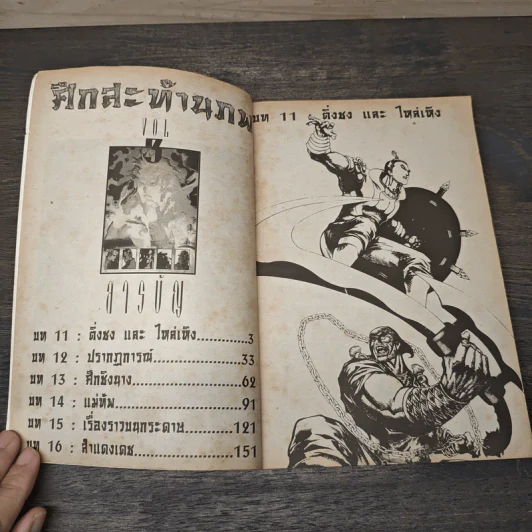 ศึกสะท้านภพ
VOL
สารบัญ
บท 11 : ติ่งชง และ ไหล่เหิง..............3
บท 12 : ปรากฏการณ์.....................33
บท 13 : ศึกชิงนาง.........................62
บท 14 : แม่ทัพ..............................91
บท 15 : เรื่องราวบนกระดาษ..........121
บท 16 : สำแดงเดช.......................151
บท 11 ติ่งชง และ ไหล่เหิง